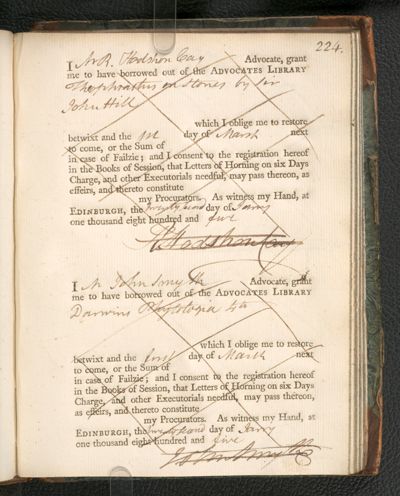 224.
I Mr R. Hodshon Cay Advocate, grant
me to have borrowed out of the ADVOCATES LIBRARY
Theophrastus on Stones by Sir
John Hill
which I oblige me to restore
betwixt and the 1st day of March next
to come, or the Sum of
in case of Failzie; and I consent to the registration hereof
in the Books of Session, that Letters of Horning on six Days
Charge, and other Executorials needful, may pass thereon, as
effeirs, and thereto constitute
my Procurators. As witness my Hand, at
EDINBURGH, the twenty second day of Janry
one thousand eight hundred and five
R Hodshon Cay
I Mr John Smyth Advocate, grant
me to have borrowed out of the ADVOCATES LIBRARY
Darwins Phytologia 4to
which I oblige me to restore
betwixt and the first day of March next
to come, or the Sum of
in case of Failzie; and I consent to the registration hereof
in the Books of Session, that Letters of Horning on six Days
Charge, and other Executorials needful, may pass thereon,
as effeirs, and thereto constitute
my Procurators. As witness my Hand, at
EDINBURGH, the day of Janry
one thousand eight hundred and five
John Smyth